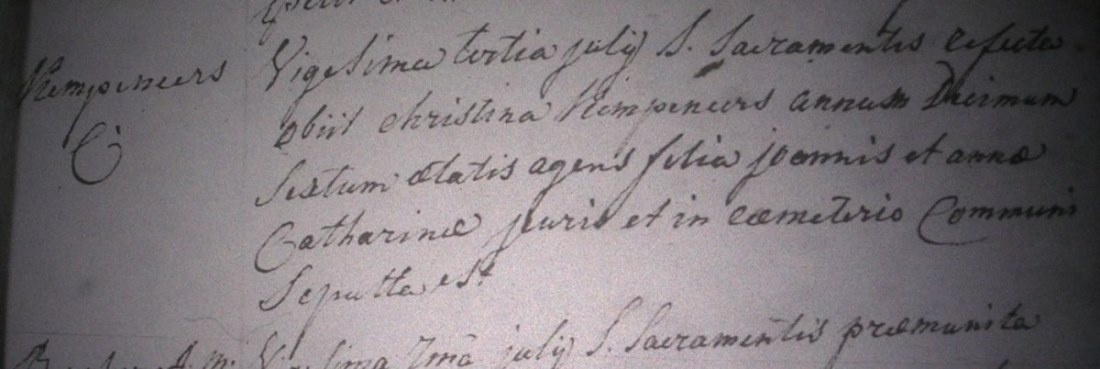 Kempeneers
C:
Vigesima tertia julij S. Sacramentis refecta
obiit christina Kempeneers annum Decimum
Sextum ætatis agens filia joannis et annæ
Catharinæ jeuris et in cæmeterio Communi
Sepulta est
Vigesima 7mâ julij S. Sacramentis præmunita